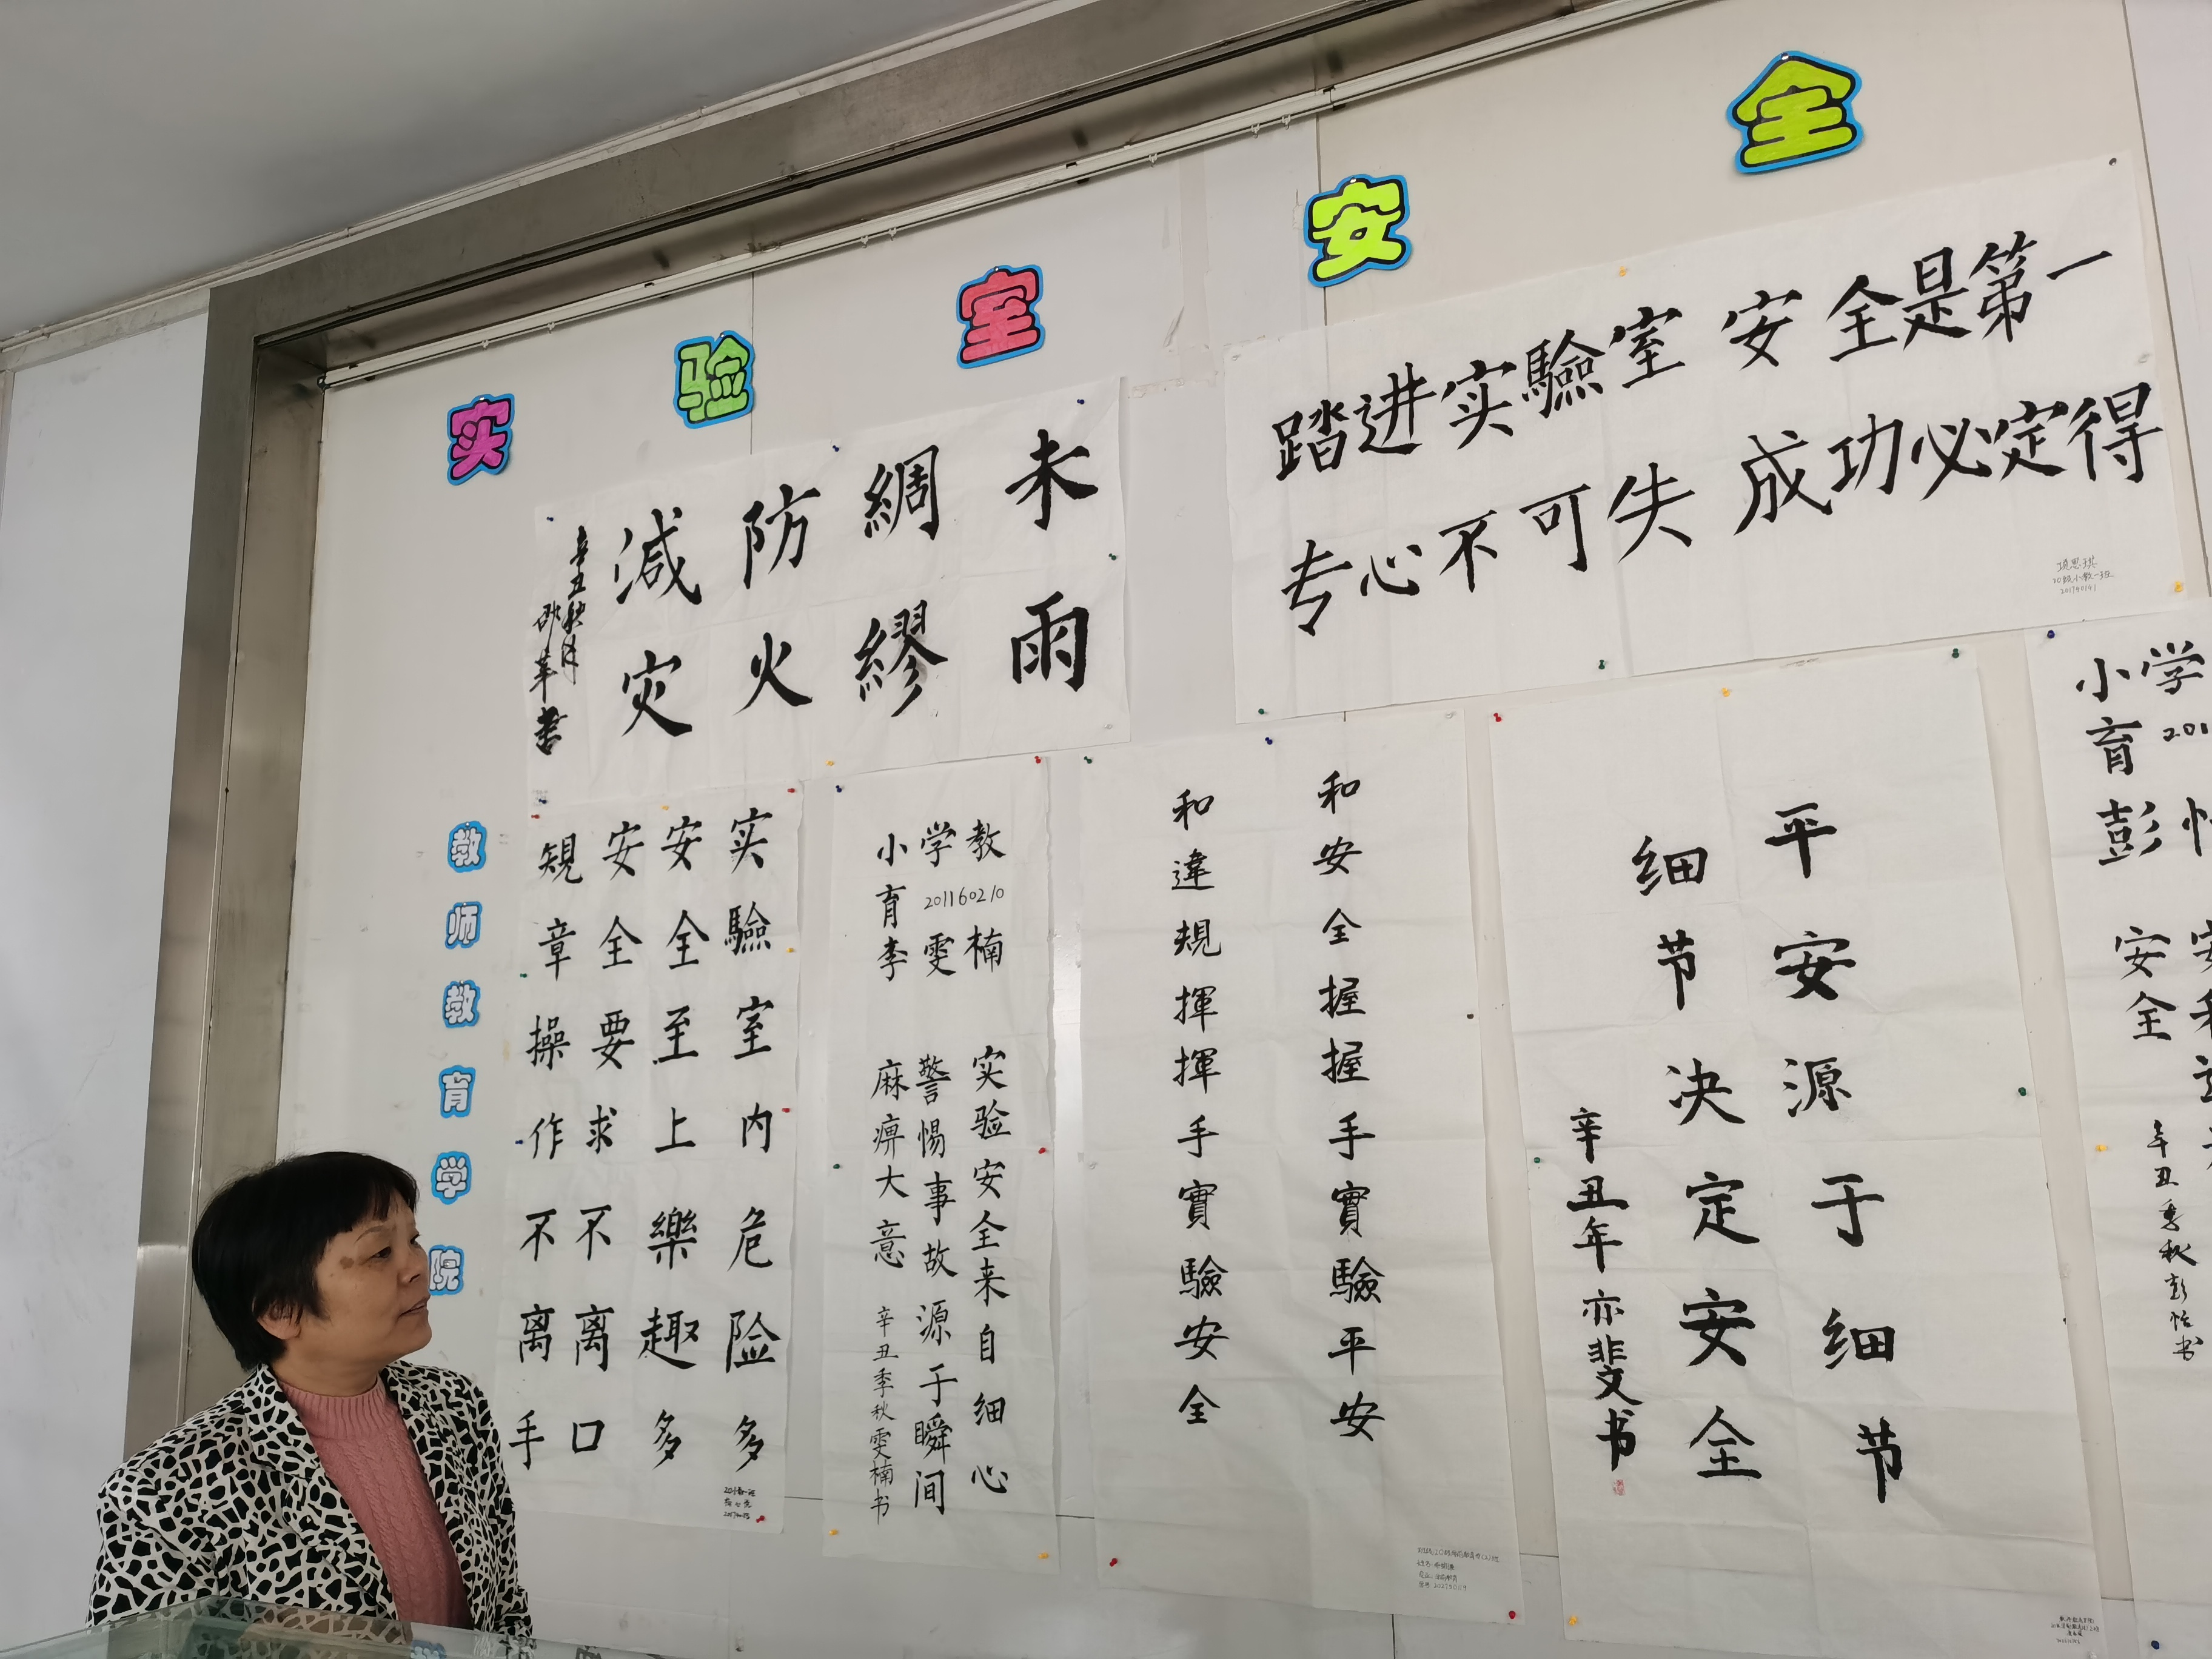 实验室安全
教师教育学院
未雨
綢繆
防火
減灾
辛丑秋月
邵苹書
踏进实驗室 安全是第一
专心不可失 成功必定得
项思琪
20级小教一班
实驗室内危险多
安全至上樂趣多
安全要求不离口
規章操作不离手
教楠
学201160210雯
小育李
实验安全来自细心
警惕事故源于瞬间
麻痹大意
辛丑季秋雯楠书
和安全握握手實驗平安
和違規揮揮手實驗安全
平安源于细节
细节决定安全
辛丑年亦斐书
小学
育 201
彭怡
安全
辛丑季秋彭怡书